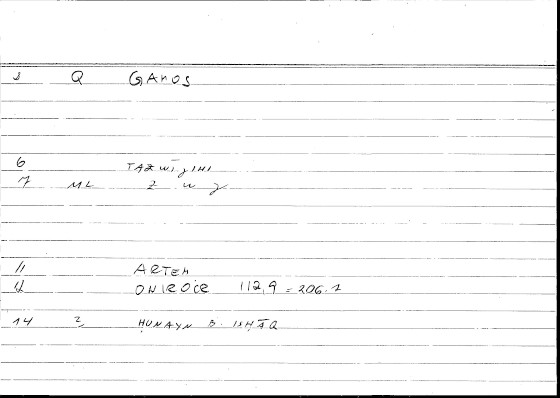 8 Q GAMOS
6 TAZWĪǧIHI
7 ML Z W ǧ
11 ARTEM
12 ONIROCR 112,9 = 206.1
14 2 ḤUNAYN B. ISḤĀQ